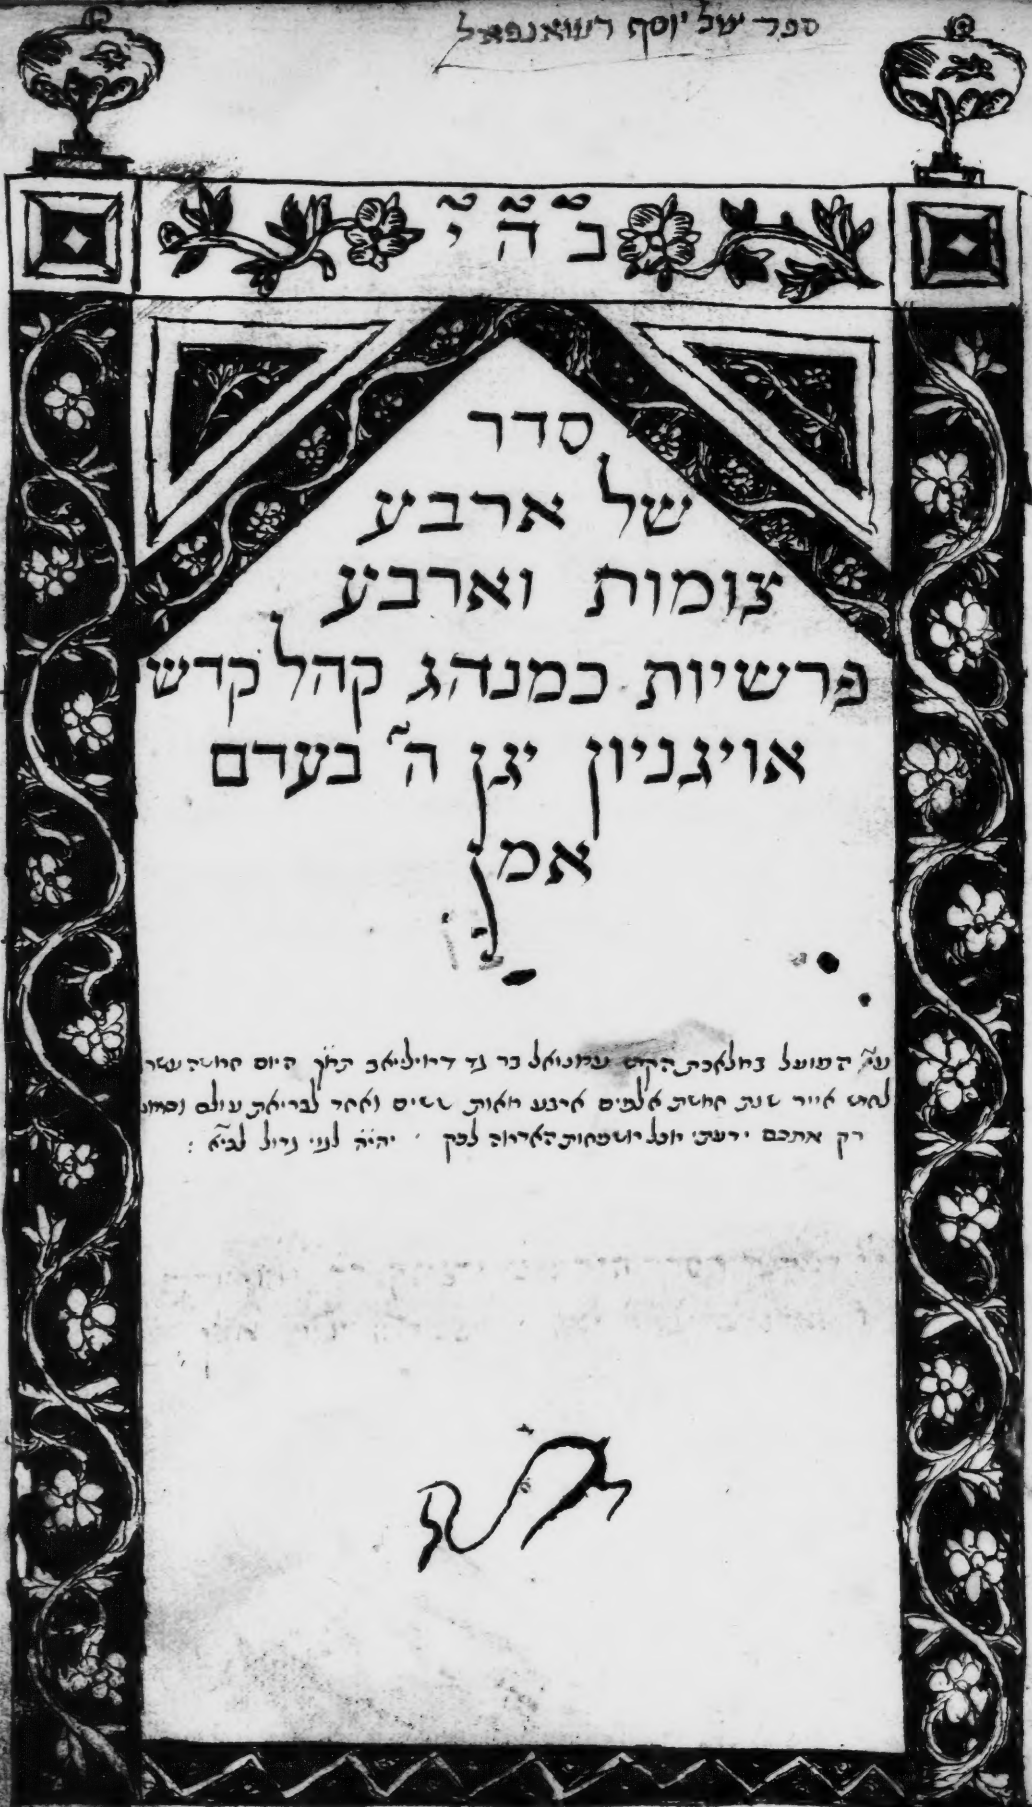 ספר של יוסף
ב ה י
סדר
של ארבע
צומות וארבע
פרשיות כמנהג קהל קדש
אויגניון יגן ה' בעדם
אמן
הפועל במלאכת הקדש עמנואל בר גד דמיליאב היום חמשה עשר
לחדש אייר שנת חמשת אלפים ארבע מאות ששים ואחד לבריאת עולם
רק אתכם ידעתי מכל משפחות האדמה לפק